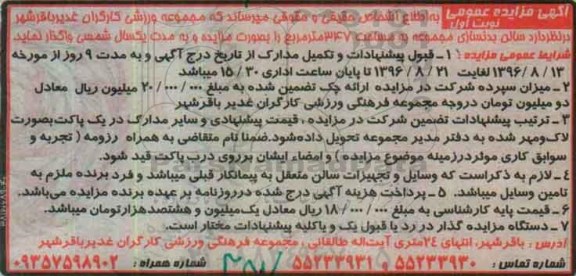 آگهی مزایده عمومی به اطلاع اشخاص حقیقی و حقوقی میرساند که مجموعه ورزشی کارگران غدیرباقرشهر
نوبت اول
درنظردارد سالن بدنسازی مجموعه به مساحت ۳۴۷مترمربع را بصورت مزایده و به مدت یکسال شمسی واگذار نماید
شرایط عمومی مزایده : ۱ـ قبول پیشنهادات و تکمیل مدارک از تاریخ درج آگهی و به مدت ۹ روز از مورخه
۱۳ / ۸ /۱۳۹۶ لغایت ۲۱ / ۸ /۱۳۹۶ تا پایان ساعت اداری ۳۰ / ۱۵ میباشد
۲ ـ میزان سپرده شرکت در مزایده ارائه چک تضمین شده به مبلغ ۰۰۰/ ۰۰۰/ ۲۰ میلیون ریال معادل
دو میلیون تومان دروجه مجموعه فرهنگی ورزشی کارگران غدیر باقرشهر
۳ ـ ترتیب پیشنهادات تضمین شرکت در مزایده ، قیمت پیشنهادی و سایر مدارک در یک پاکت‌بصورت
لاک‌ومهر شده به دفتر مدیر مجموعه تحویل داده‌شود.ضمنا نام متقاضی به همراه رزومه ( تجربه و
سوابق کاری موثردرزمینه موضوع مزایده ) و امضاء ایشان برروی درب پاکت قید شود.
۴ ـ لازم به ذکراست که وسایل و تجهیزات سالن متعلق به پیمانکار قبلی میباشد و فرد برنده ملزم به
تامین وسایل میباشد. ۵ ـ پرداخت هزینه آگهی درج شده درروزنامه بر عهده برنده مزایده می‌باشد.
۶ ـ قیمت پایه کارشناسی به مبلغ ۰۰۰/ ۰۰۰/ ۱۸ ریال معادل یک‌میلیون و هشتصدهزارتومان میباشد.
۷ ـ دستگاه مزایده گذار در رد یا قبول یک و یاکلیه پیشنهادات مختار است.
آدرس : باقرشهر، انتهای ۲۴متری آیت‌اله طالقانی ، مجموعه فرهنگی ورزشی کارگران غدیرباقرشهر
شماره تماس : ۵۵۲۳۳۹۳۰ و ۵۵۲۳۳۹۳۱ شماره همراه : ۰۹۳۵۷۵۹۸۹۰۲